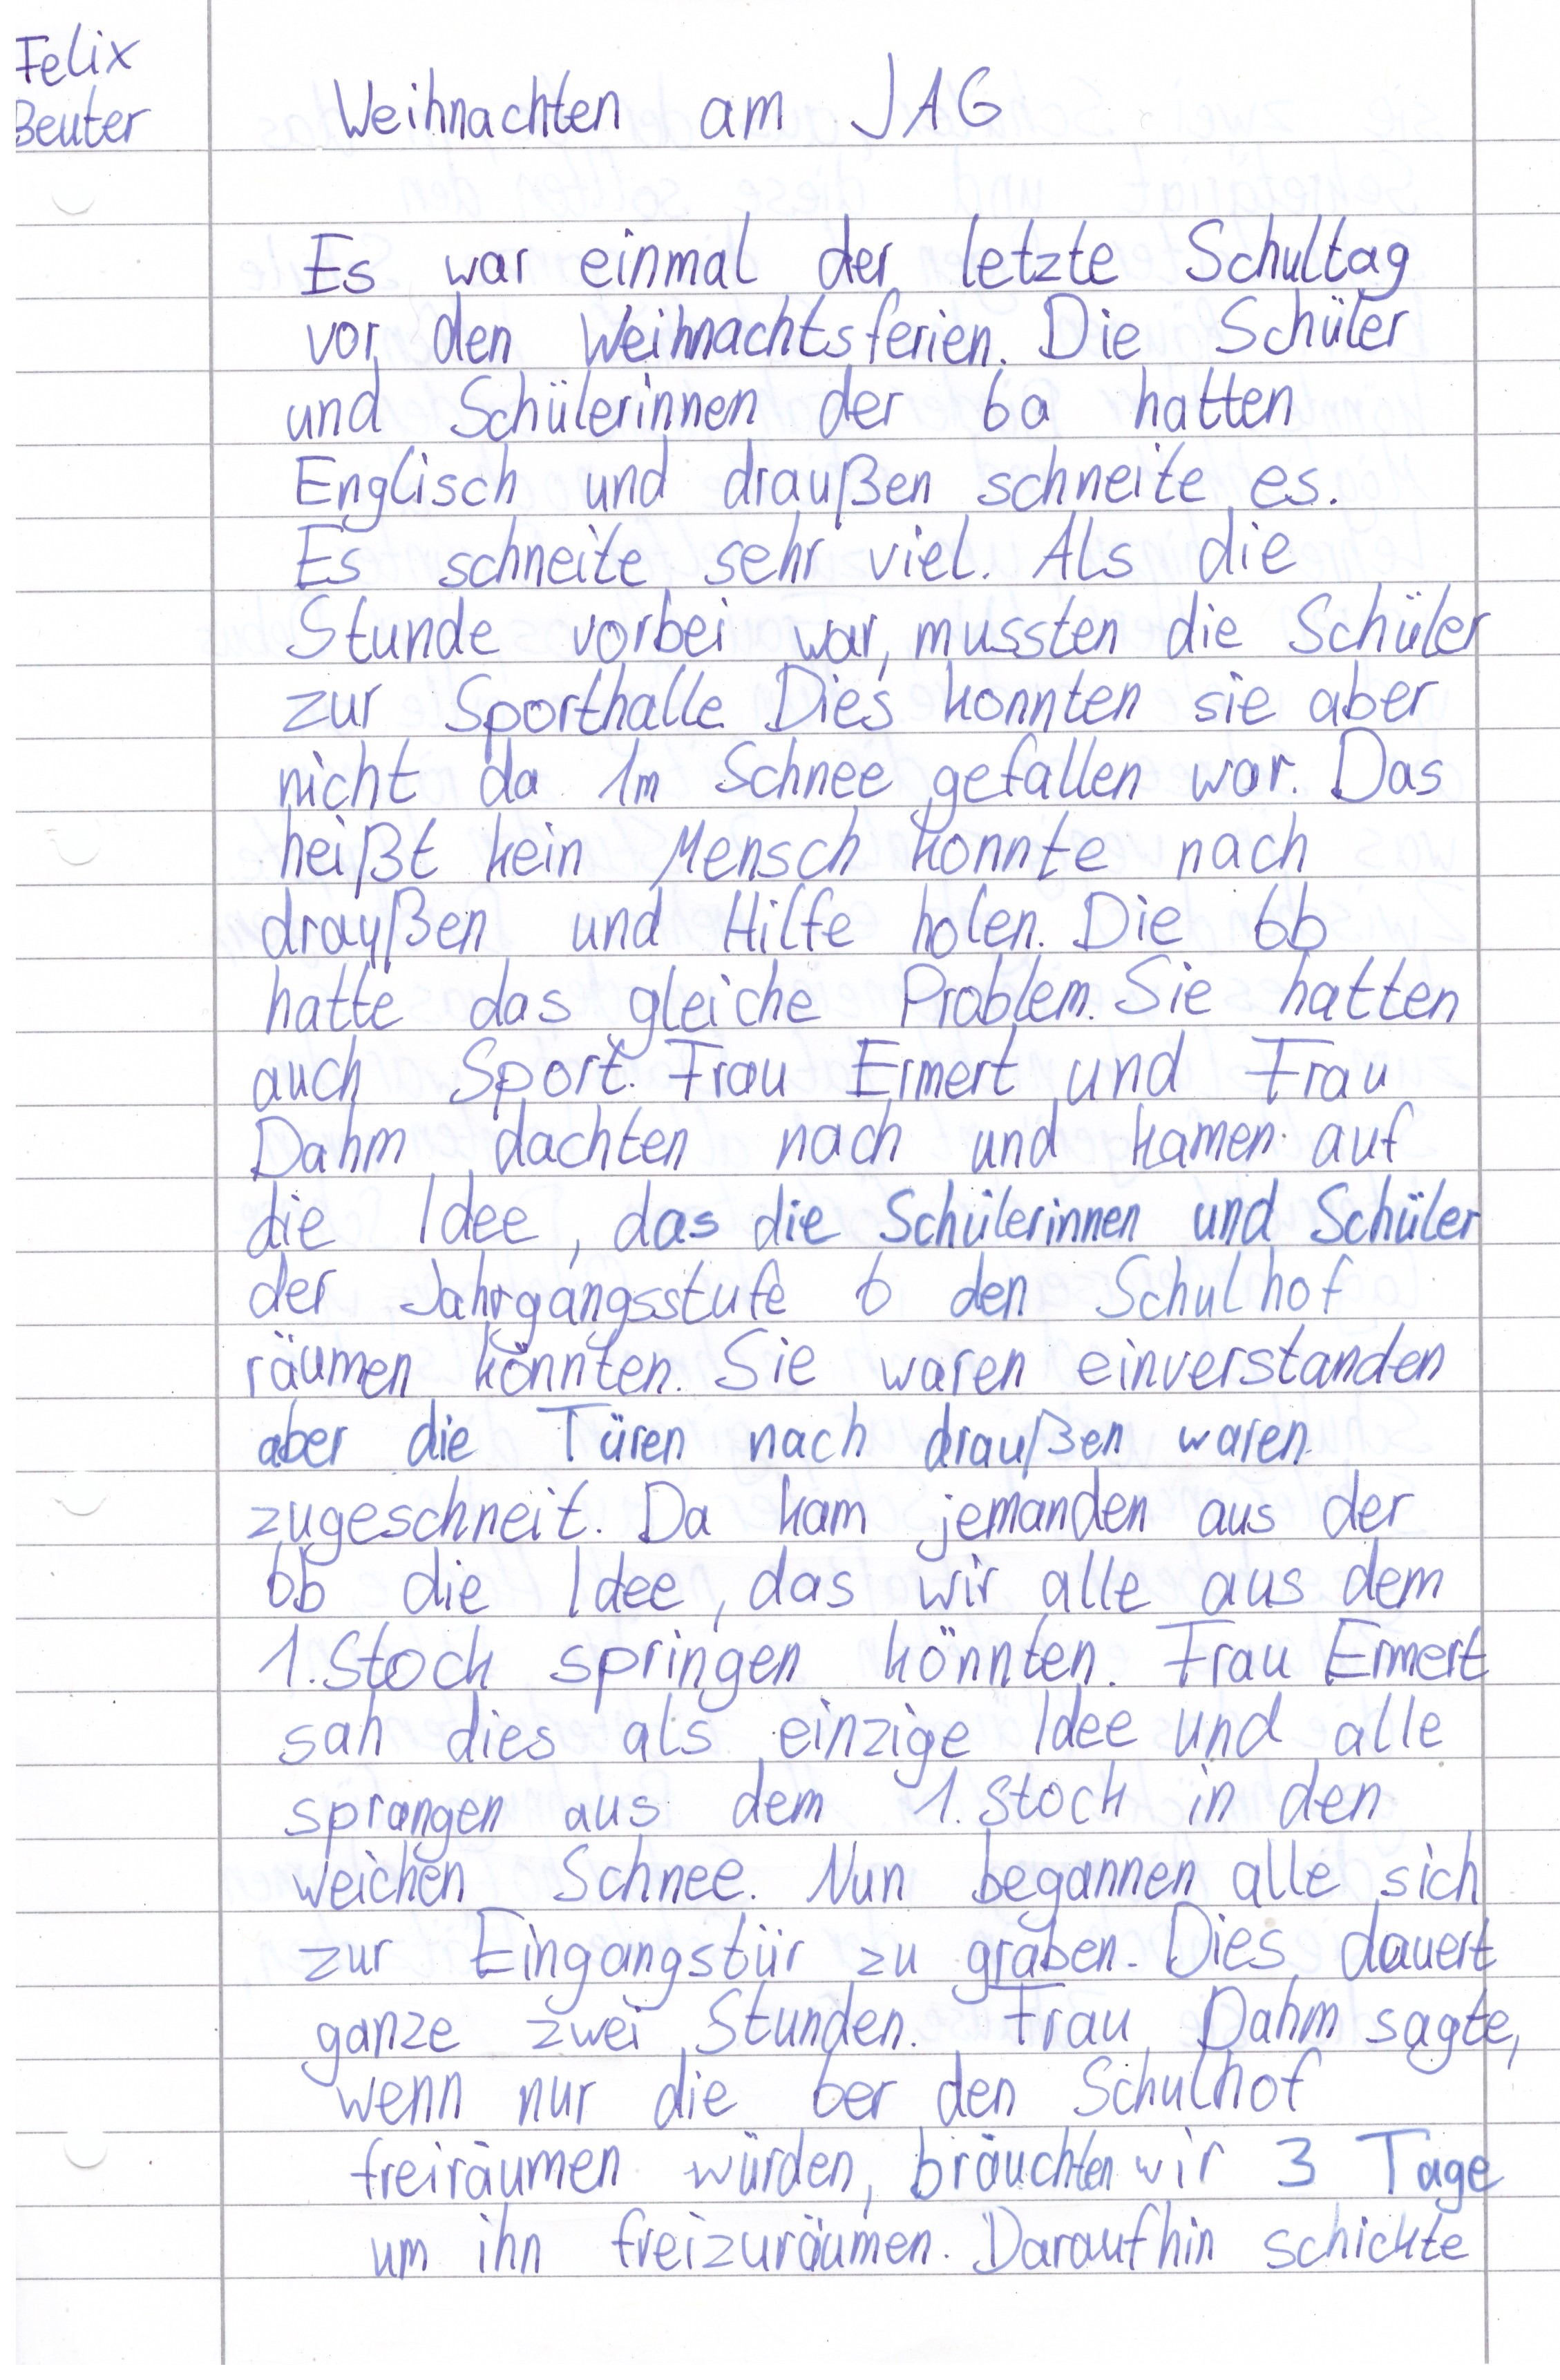 Felix
Beuter
Weihnachten am JAG
Es war einmal der letzte Schultag
vor den Weihnachtsferien. Die Schüler
und Schülerinnen der 6a hatten
Englisch und draußen schneite es.
Es schneite sehr viel. Als die
Stunde vorbei war, mussten die Schüler
zur Sporthalle. Dies konnten sie aber
nicht da 1m Schnee gefallen war. Das
heißt kein Mensch konnte nach
draußen und Hilfe holen. Die 6b
hatte das gleiche Problem. Sie hatten
auch Sport. Frau Ermert und Frau
Dahm dachten nach und kamen auf
die Idee, das die Schülerinnen und Schüler
der Jahrgangsstufe 6 den Schulhof
räumen könnten. Sie waren einverstanden
aber die Türen nach draußen waren
zugeschneit. Da kam jemanden aus der
6b die Idee, das wir alle aus dem
1. Stock springen könnten. Frau Ermert
sah dies als einzige Idee und alle
sprangen aus dem 1. Stock in den
weichen Schnee. Nun begannen alle sich
zur Eingangstür zu graben. Dies dauert
ganze zwei Stunden. Frau Dahm sagte,
wenn nur die 6er den Schulhof
freiräumen würden, bräuchten wir 3 Tage
um ihn freizuräumen. Daraufhin schickte